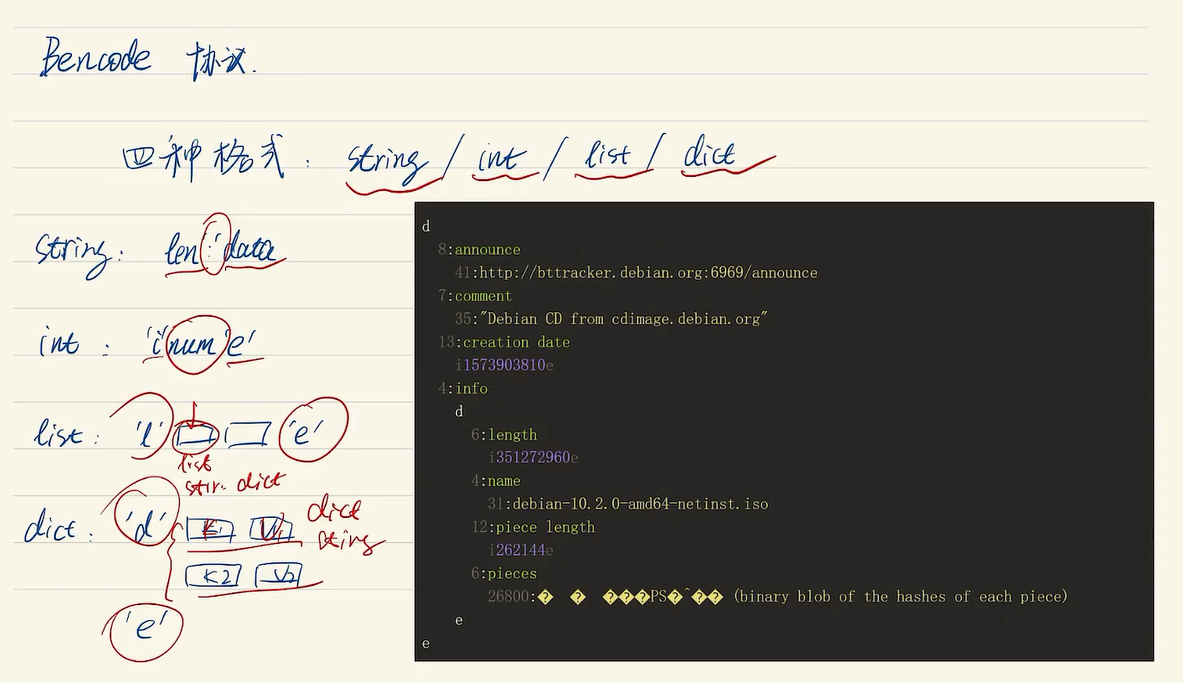 Bencode 协议.
四种格式: string / int / list / dict
string: len ':' data
int : 'i' num 'e'
list: 'l' 'e'
list
str. dict
dict: 'd' K1 V1 dict
string
K2 V2
'e'
d
8:announce
41:http://bttracker.debian.org:6969/announce
7:comment
35:"Debian CD from cdimage.debian.org"
13:creation date
i1573903810e
4:info
d
6:length
i351272960e
4:name
31:debian-10.2.0-amd64-netinst.iso
12:piece length
i262144e
6:pieces
26800:� � ���PS�^�� (binary blob of the hashes of each piece)
e
e